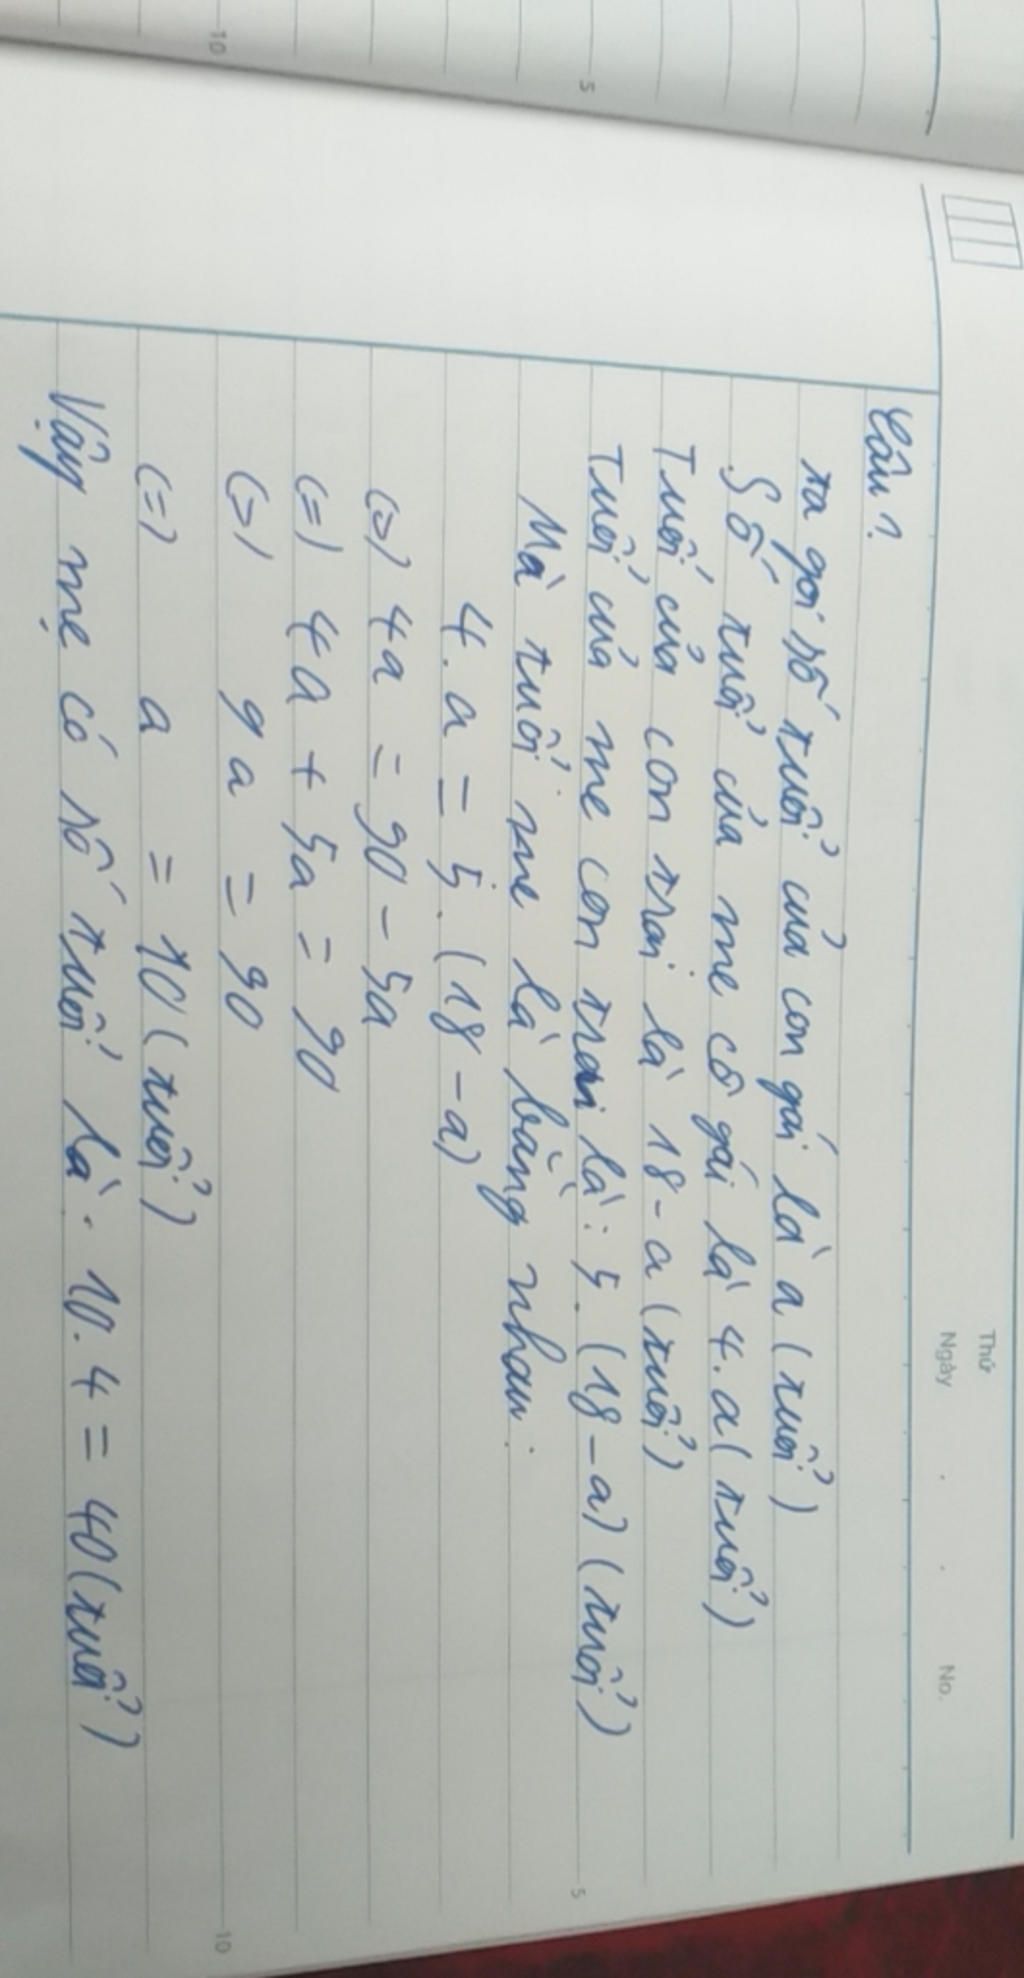 Thứ
Ngày . . No.
Câu ?
Ta gọi số tuổi của con gái là a (tuổi)
Số tuổi của mẹ cô gái là 4.a (tuổi)
Tuổi của con trai là 18 - a (tuổi)
Tuổi của mẹ con trai là : 5. (18 - a) (tuổi)
Mà tuổi mẹ là bằng nhau :
4. a = 5. (18 - a)
(=) 4a = 90 - 5a
(=) 4a + 5a = 90
(=) 9a = 90
(=) a = 10 (tuổi)
Vậy mẹ có số tuổi là . 10. 4 = 40 (tuổi)
5
10
5
10